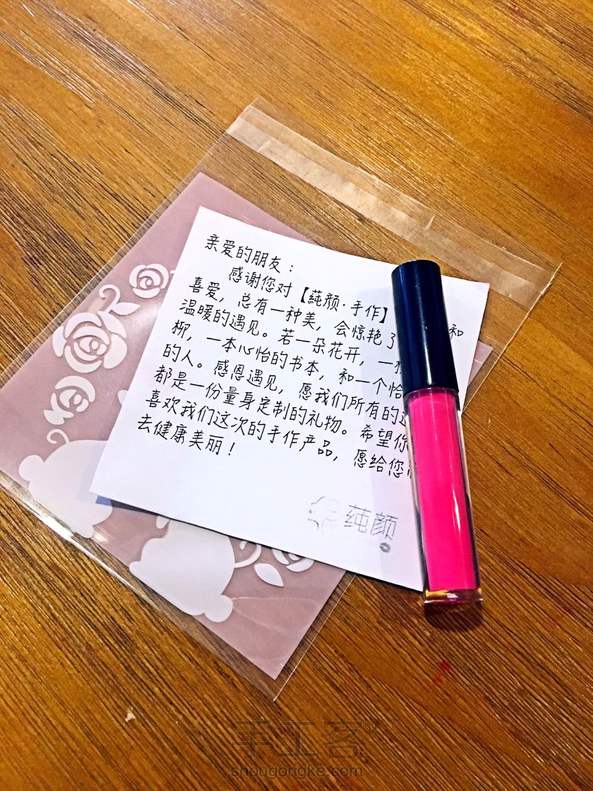 亲爱的朋友：
感谢您对【莼颜·手作】
喜爱，总有一种美，会惊艳了 和
温暖的遇见。若一朵花开，一
柳，一本心怡的书本，和一个恰
的人。感恩遇见，愿我们所有的
都是一份量身定制的礼物。希望你
喜欢我们这次的手作产品，愿给您
去健康美丽！
莼颜
手工客
shougongke.com